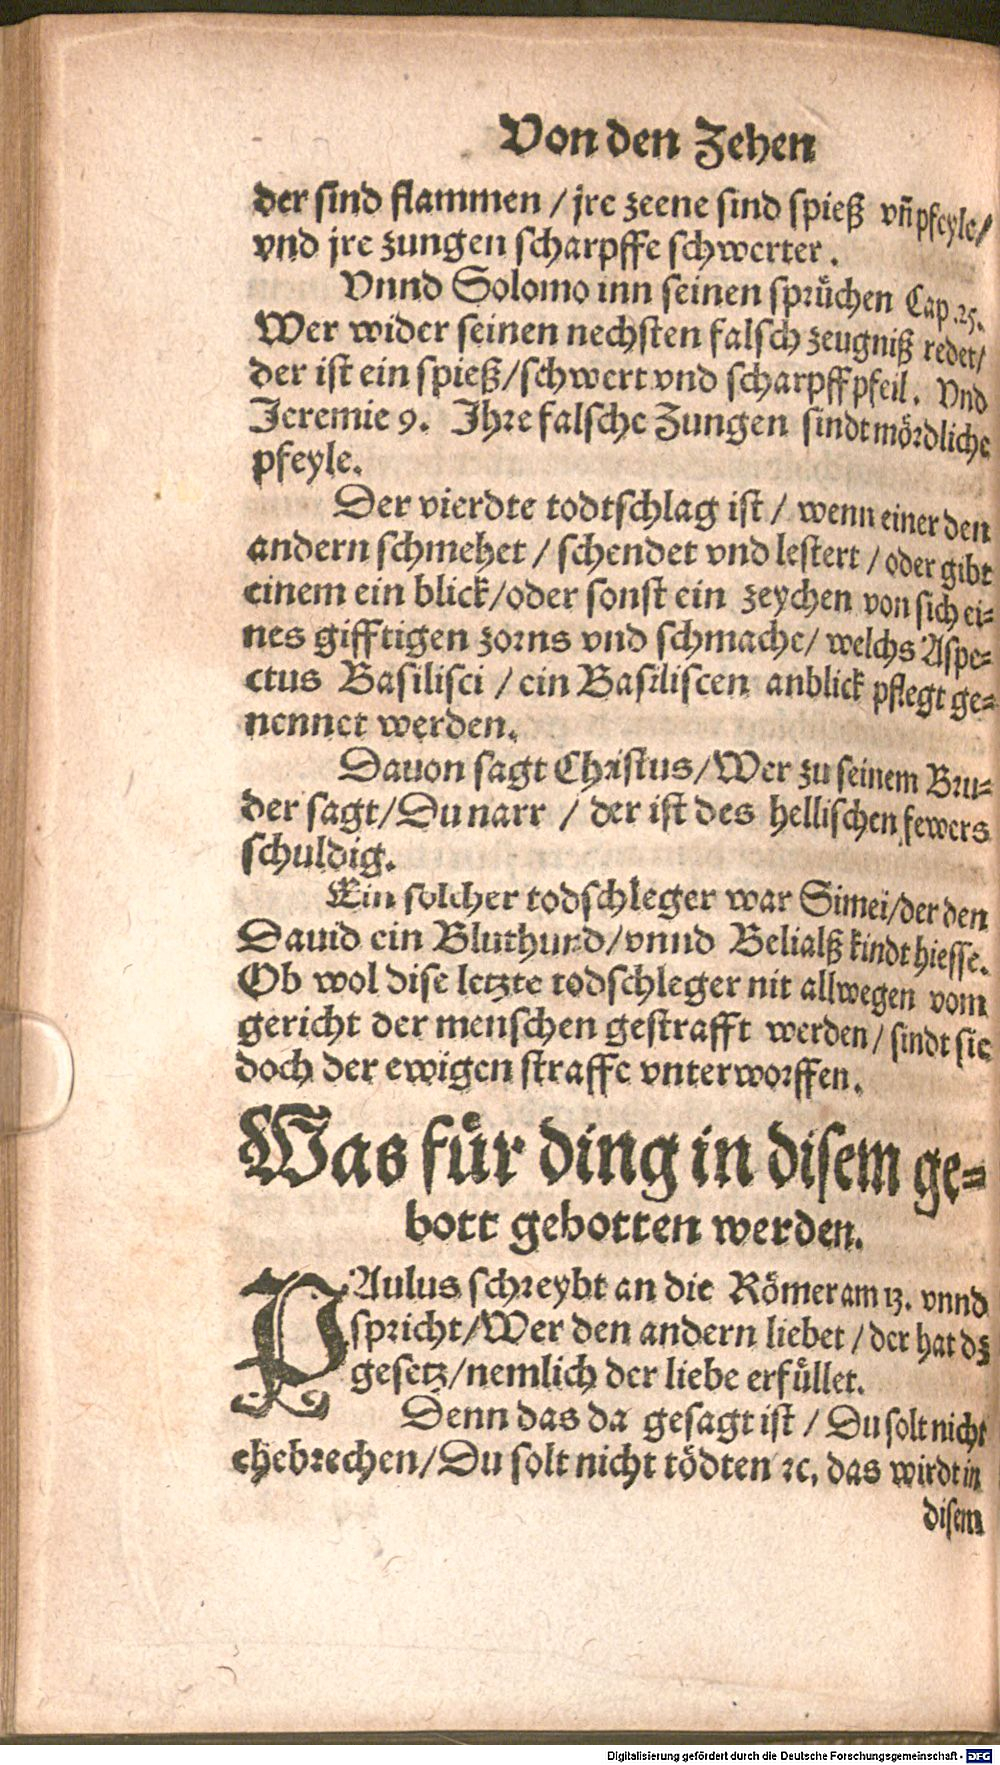 Von den Zehen
der sind flammen / jre zeene sind spieß vn̄ pfeyle /
vnd jre zungen scharpffe schwerter.
Vnnd Solomo inn seinen sprüchen Cap. 25.
Wer wider seinen nechsten falsch zeugniß redet /
der ist ein spieß / schwert vnd scharpff pfeil. Vnd
Jeremie 9. Ihre falsche Zungen sindt mördliche
pfeyle.
Der vierdte todtschlag ist / wenn einer den
andern schmehet / schendet vnd lestert / oder gibt
einem ein blick / oder sonst ein zeychen von sich ei⸗
nes gifftigen zorns vnd schmache / welchs Aspe⸗
ctus Basilisci / ein Basiliscen anblick pflegt ge⸗
nennet werden.
Dauon sagt Christus / Wer zu seinem Bru⸗
der sagt / Du narr / der ist des hellischen fewers
schuldig.
Ein solcher todschleger war Simei / der den
Dauid ein Bluthund / vnnd Belialß kindt hiesse.
Ob wol dise letzte todschleger nit allwegen vom
gericht der menschen gestrafft werden / sindt sie
doch der ewigen straffe vnterworffen.
Was für ding in disem ge⸗
bott gebotten werden.
PAulus schreybt an die Römer am 13. vnnd
spricht / Wer den andern liebet / der hat dz
gesetz / nemlich der liebe erfüllet.
Denn das da gesagt ist / Du solt nicht
ehebrechen / Du solt nicht tödten ꝛc. das wirdt in
disem
Digitalisierung gefördert durch die Deutsche Forschungsgemeinschaft - DFG